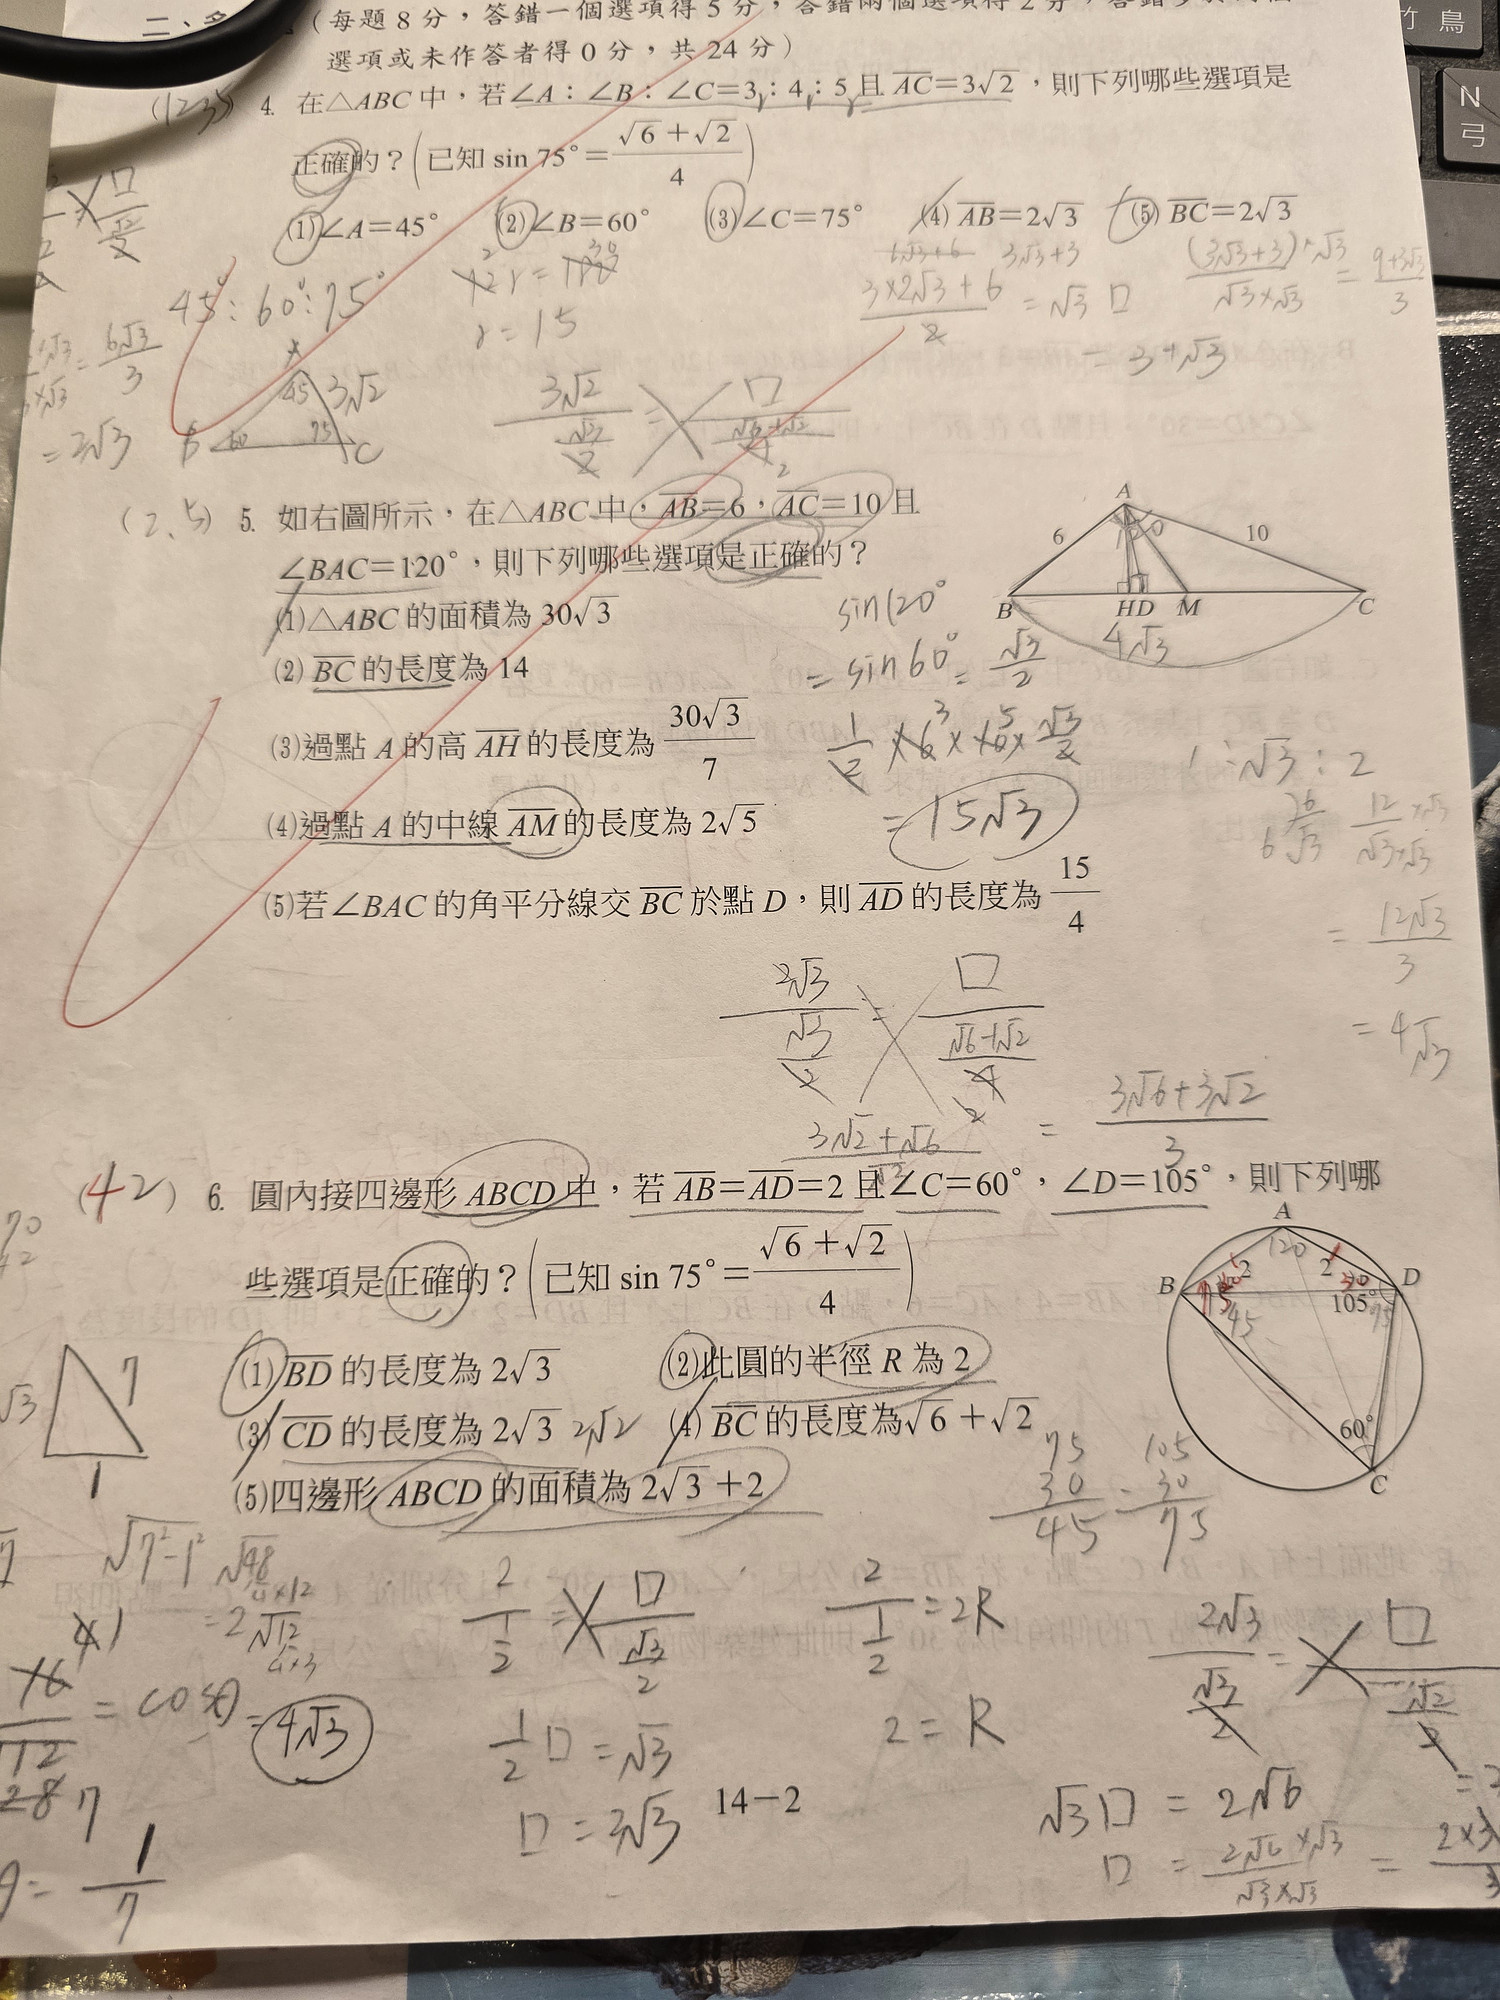 二、多
(每題8分，答錯一個選項得5分，答錯兩個選項得2分，答錯
選項或未作答者得0分，共24分)
(1235) 4. 在△ABC中，若∠A：∠B：∠C=3：4：5且AC=3√2，則下列哪些選項是
正確的？(已知 sin 75°=(√6+√2)/4)
(1)∠A=45° (2)∠B=60° (3)∠C=75° (4) AB=2√3 (5) BC=2√3
45°:60°:75°
12r=180
r=15
(3×2√3+6)/2 = √3 □
6√3+6 3√3+3
(3√3+3)×√3/(√3×√3) = (9+3√3)/3
= 3+√3
6√3/3
=2√3
A
45 3√2
B 60 75 C
3√2/(√3/2) = □/((√6+√2)/4)
2
(2、5) 5. 如右圖所示，在△ABC中，AB=6，AC=10且
∠BAC=120°，則下列哪些選項是正確的？
(1)△ABC的面積為30√3
(2) BC的長度為14
(3)過點A的高AH的長度為 30√3/7
(4)過點A的中線AM的長度為2√5
(5)若∠BAC的角平分線交BC於點D，則AD的長度為 15/4
A
6 10
B H D M C
4√3
sin120°
= sin60° = √3/2
1/2×6×10×√3/2
3 5
= 15√3
1:√3:2
12×√3/(√3×√3)
= 12√3/3
= 4√3
□/((√6+√2)/4)
2
(3√2+√6)/√2
= (3√6+3√2)/3
(42) 6. 圓內接四邊形ABCD中，若AB=AD=2且∠C=60°，∠D=105°，則下列哪
些選項是正確的？(已知 sin 75°=(√6+√2)/4)
(1) BD的長度為2√3 (2)此圓的半徑R為2
(3) CD的長度為2√3 2√2 (4) BC的長度為√6+√2
(5)四邊形ABCD的面積為2√3+2
A
120
B 2 2 D
30
75 45 105° 75
60°
C
75
30
45
105
-30
75
√3 7
1
√(7²-1²) √48
4×12
=2√12
4×3
= 4√3
16/112 = cosθ
28 7
θ= 1/7
2/(1/2) = □/(√3/2)
1/2 □ = √3
□ = 2√3
2/(1/2) = 2R
2 = R
2√3/(√3/2) = □/(√2/2)
√3□ = 2√6
□ = 2√6×√3/(√3×√3) =
14−2
竹 鳥
N
弓